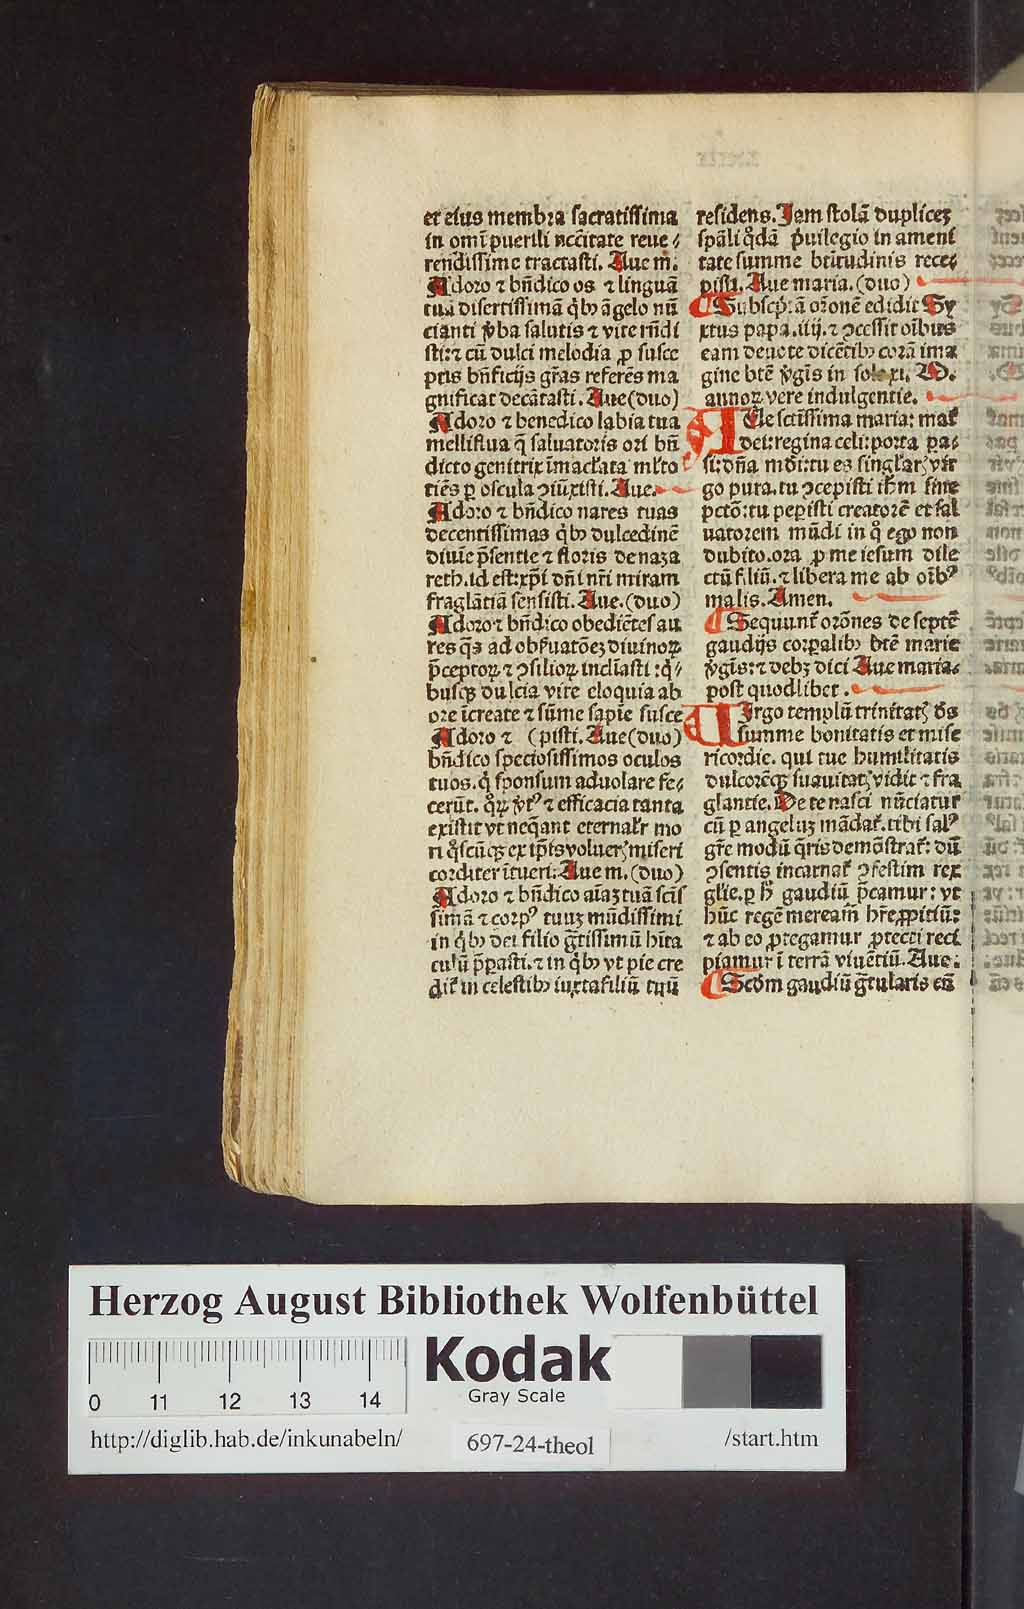 et eius membra sacratissima
in om̄i puerili nccītate reue⸗
rendissime tractasti. Aue m.
Adoro ⁊ bn̄dico os ⁊ linguā
tuā disertissimā qͥbꝫ āgelo nū
cianti v̄ba salutis ⁊ vite mūdi
sti: ⁊ cū dulci melodia ꝓ susce
ptis bn̄ficijs gr̄as referēs ma
gnificat decātasti. Aue (duo)
Adoro ⁊ benedico labia tua
melliflua q̄ saluatoris ori bn̄
dicto genitrix īmacl̄ata ml̄to
tiēs ꝑ oscula ꝯiūxisti. Aue.
Adoro ⁊ bn̄dico nares tuas
decentissimas qͥbꝫ dulcedinē
diuie p̄sentie ⁊ floris de naza
reth. id est: xp̄i dn̄i nr̄i miram
fraglātiā sensisti. Aue. (duo)
Adoro ⁊ bn̄dico obediētes au
res ad diuinoꝝ
p̄ceptoꝝ ⁊ ꝯsilioꝝ : qͥ⸗
busqꝫ dulcia vite eloquia ab
ore īcreate ⁊ sūme sapīe susce
Adoro ⁊ (pisti. Aue (duo)
bn̄dico speciosissimos oculos
tuos. qͥ sponsum aduolare fe⸗
cerūt. qͦꝝ ⁊ efficacia tanta
existit vt neqͣant eternalr̄ mo
ri qͦscūqꝫ ex ip̄is voluer̄ miseri
corditer ītueri: Aue m. (duo)
Adoro ⁊ bn̄dico aīaꝫ tuā scīs
simā ⁊ corpꝰ tuuꝫ mūdissimi
in qͥbꝫ dei filio gͣtissimū hīta
culū p̄parasti. ⁊ in qͥbꝫ vt pie cre
dit̄ in celestibꝫ iuxta filiū tuū
residens. Jam stolā dupliceꝫ
sp̄ali qͦdā pͥuilegio in ameni
tate summe bt̄itudinis rece⸗
pisti. Aue maria. (duo)
Subscp̄tā or̄onē edidit Sy
xtus papa .iiij. ⁊ ꝯcessit oībus
eam deuote dicētibꝫ corā ima
gine btē v̄gīs in sole xi. M.
annoꝝ vere indulgentie.
AUe sctīssima maria: mat̄
dei: regina celi: porta pa⸗
si: dn̄a mūdi: tu es singl̄arꝭ vir
go pura. tu ꝯcepisti ihm̄ sine
pctō: tu peperisti creatorē et sal
uatorem mūdi in qͦ ego non
dubito. ora ꝓ me iesum dile
ctū filiū. ⁊ libera me ab oībꝰ
malis. Amen.
Sequunt̄ orōnes de septē
gaudijs corꝑalibꝫ btē marie
v̄gīs: ⁊ debꝫ dici Aue maria⸗
post quodlibet.
UIrgo templū trinitatꝭ ds̄
summe bonitatis et mise
ricordie. qui tue humilitatis
dulcorēqꝫ suauitatꝭ vidit ⁊ fra
glantie. De te nasci nūciatur
cū ꝑ angeluꝫ mādat̄. tibi salꝰ
gr̄e modū qͣris demōstrat̄: dū
ꝯsentis incarnat̄ ꝯfestim rex
gl̄ie. ꝑ h̄ gaudiū p̄camur: vt
hūc regē meream̄ hr̄e ꝓpitiū:
⁊ ab eo ꝓtegamur ꝓtecti reci
piamur ī terrā viuētiū. Aue:
Scd̄m gaudiū gͣtularis cū
Herzog August Bibliothek Wolfenbüttel
0 11 12 13 14
Kodak
Gray Scale
http://diglib.hab.de/inkunabeln/
697-24-theol
/start.htm